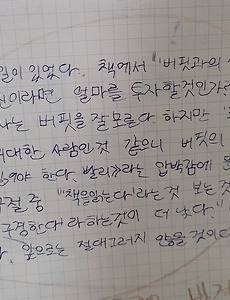 일이 있었다. 책에서 "버핏과의
신이라면 얼마를 투자할것인가?
나는 버핏을 잘 모른다 하지만
대한 사람인것 같으니 버핏의
야 한다. 빨리》라는 압박감에
절 중 "책을읽는다'라는것 보는것
구경한다 라하는것이 더 낫다."
앞으로는 절대그러지 않을것이다